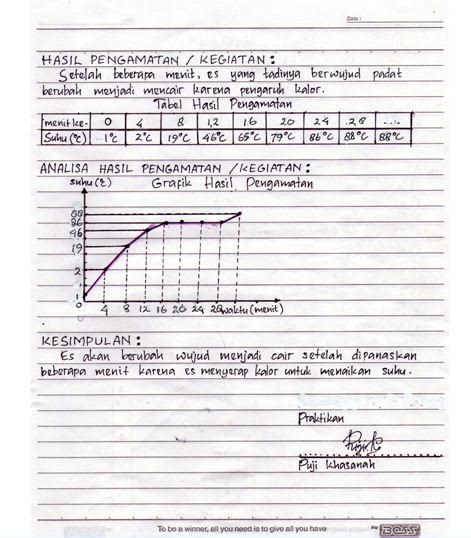 Date :
HASIL PENGAMATAN / KEGIATAN :
Setelah beberapa menit, es yang tadinya berwujud padat
berubah menjadi mencair karena pengaruh kalor.
Tabel Hasil Pengamatan
menit ke- 0 4 8 12 16 20 24 28 ....
Suhu (°C) 1°C 2°C 19°C 46°C 65°C 79°C 86°C 88°C 88°C
ANALISA HASIL PENGAMATAN / KEGIATAN :
Suhu (°C) Grafik Hasil Pengamatan
88
86
46
19
2
1
0
4 8 12 16 20 24 28 waktu (menit)
KESIMPULAN :
Es akan berubah wujud menjadi cair setelah dipanaskan
beberapa menit karena es menyerap kalor untuk menaikan suhu.
Praktikan
Puji Khasanah
To be a winner, all you need is to give all you have
by BOSS